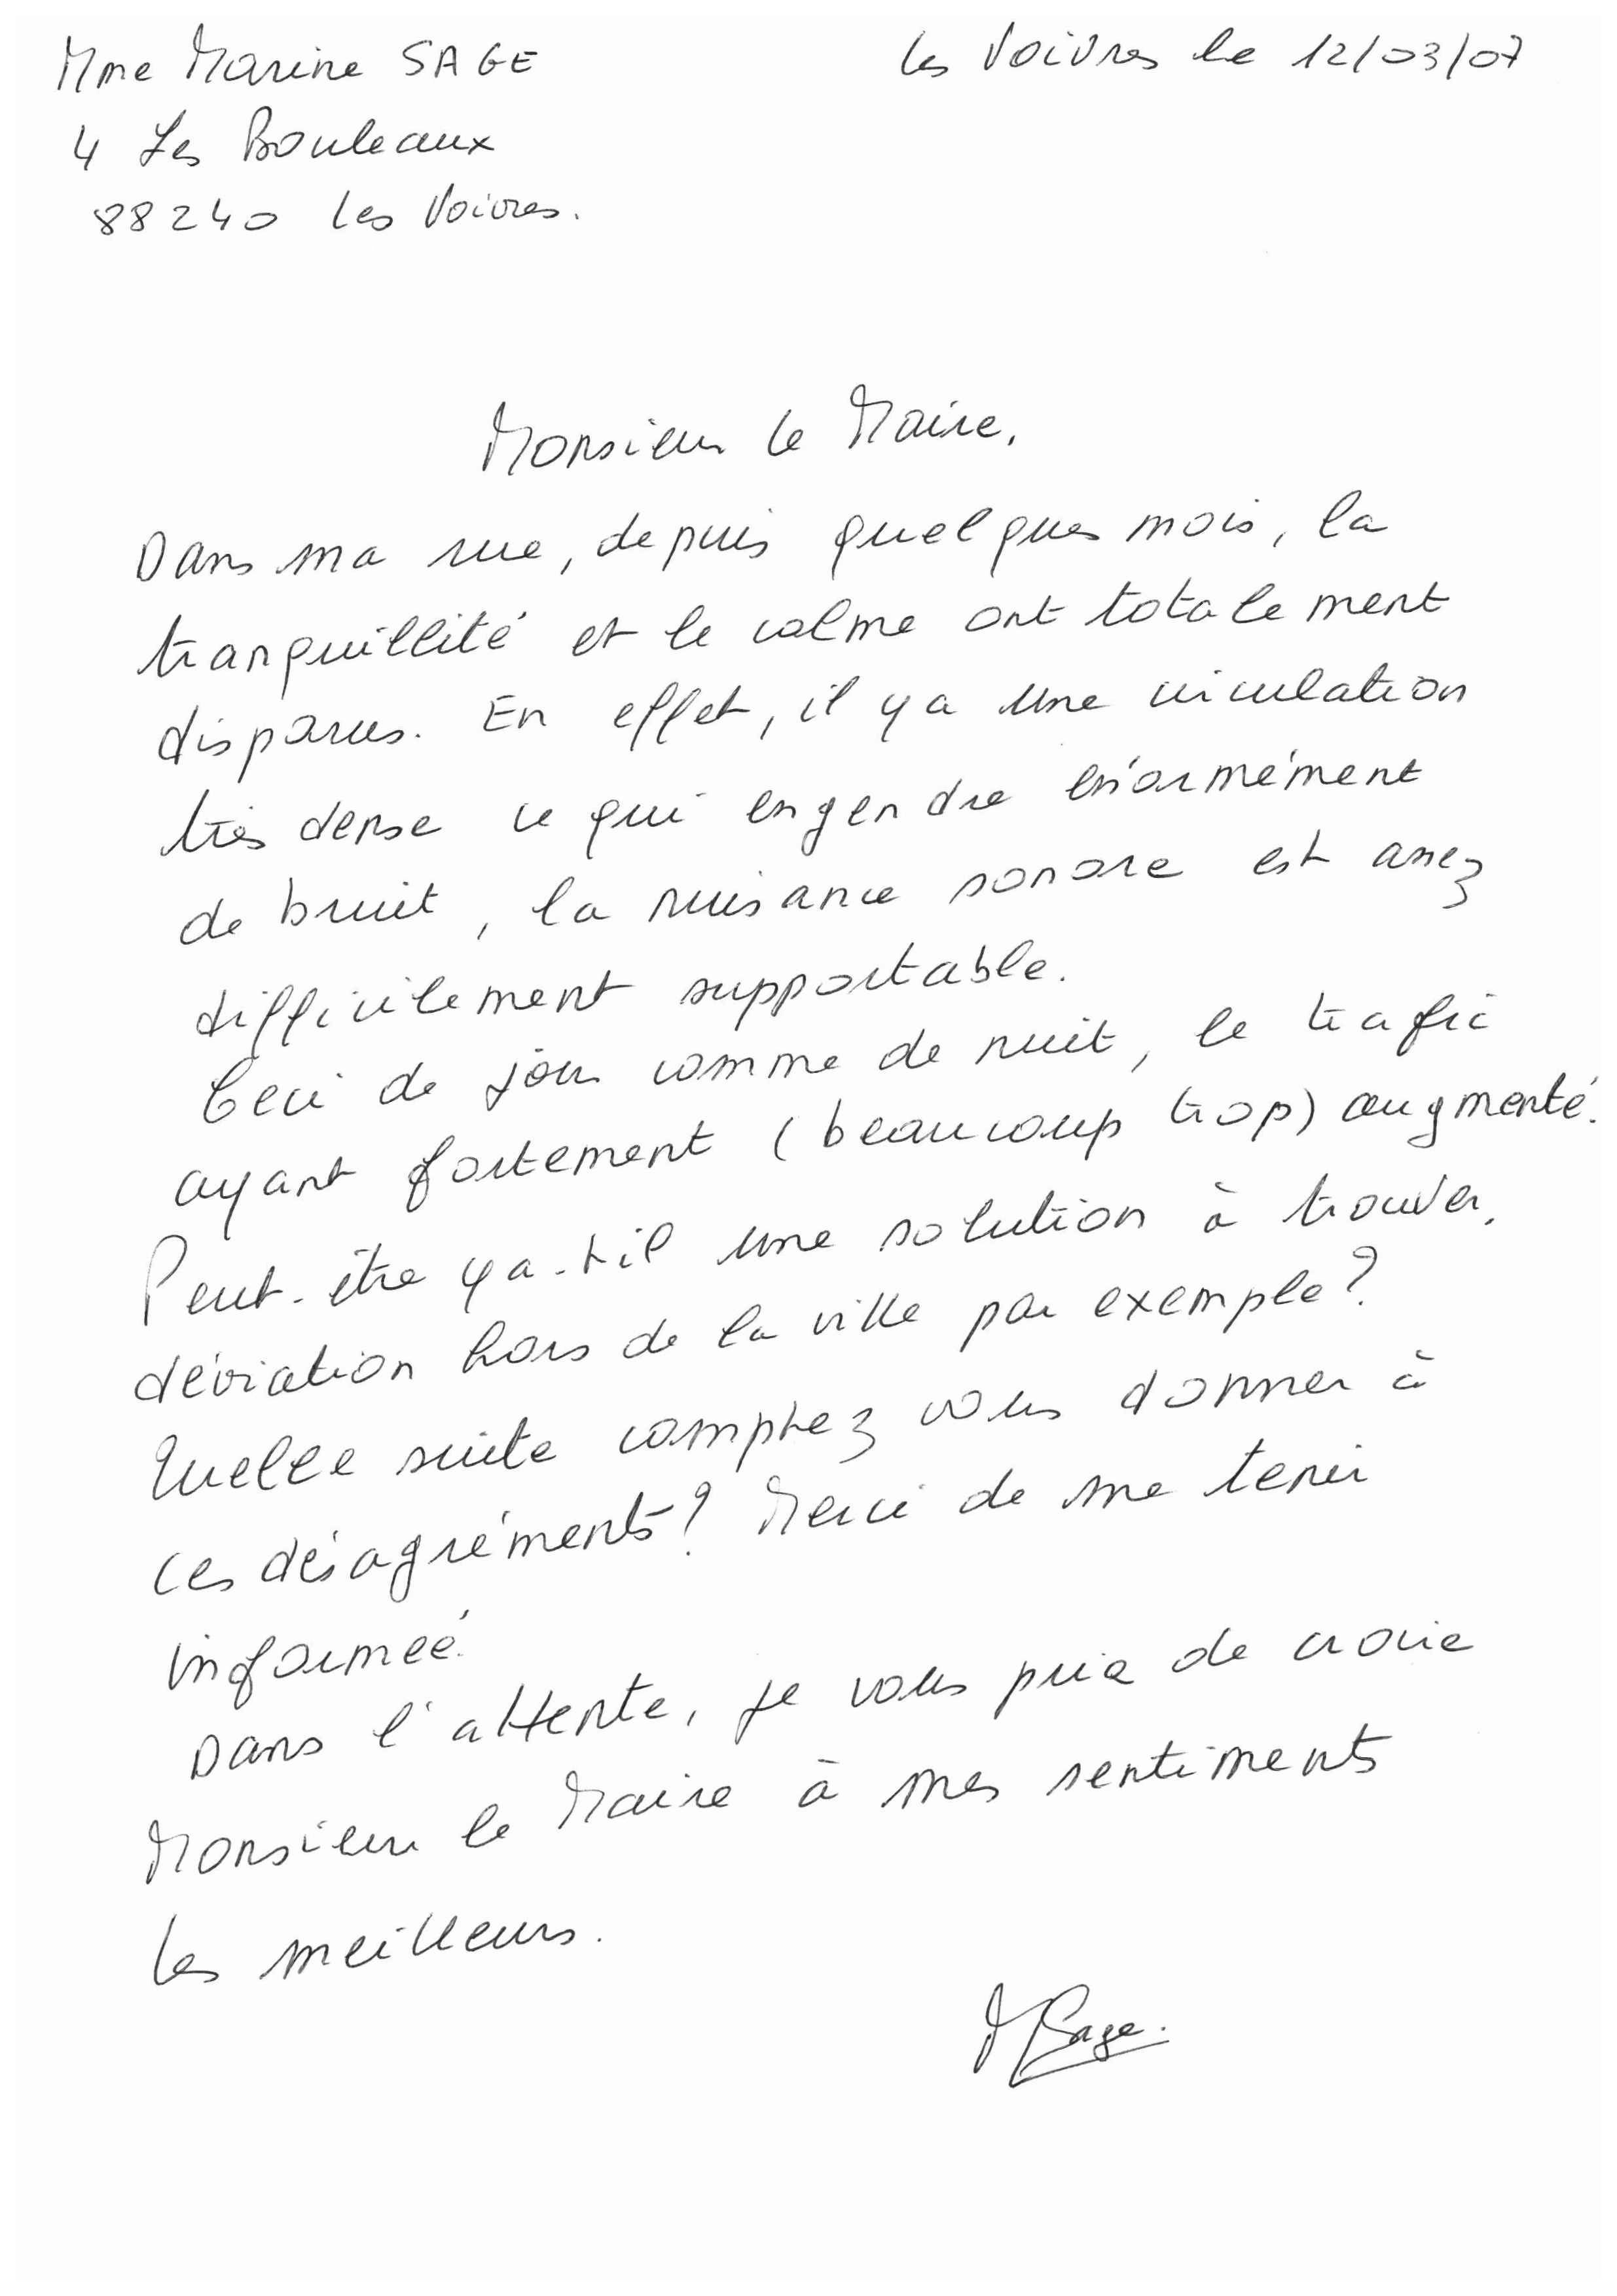 Mme Marine SAGE
les Voivres le 12/03/07
4 Les Bouleaux
88240 les Voivres.
Monsieur le Maire,
Dans ma rue, depuis quelques mois, la
tranquillité et le calme ont totalement
disparus. En effet, il y a une circulation
très dense ce qui engendre énormément
de bruit, la nuisance sonore est assez
difficilement supportable.
Ceci de jour comme de nuit, le trafic
ayant fortement (beaucoup trop) augmenté.
Peut-être y a-t-il une solution à trouver,
déviation hors de la ville par exemple?
Quelle suite comptez vous donner à
ces désagréments? Merci de me tenir
informée.
Dans l'attente, je vous prie de croire
Monsieur le Maire à mes sentiments
les meilleurs.
MSage.